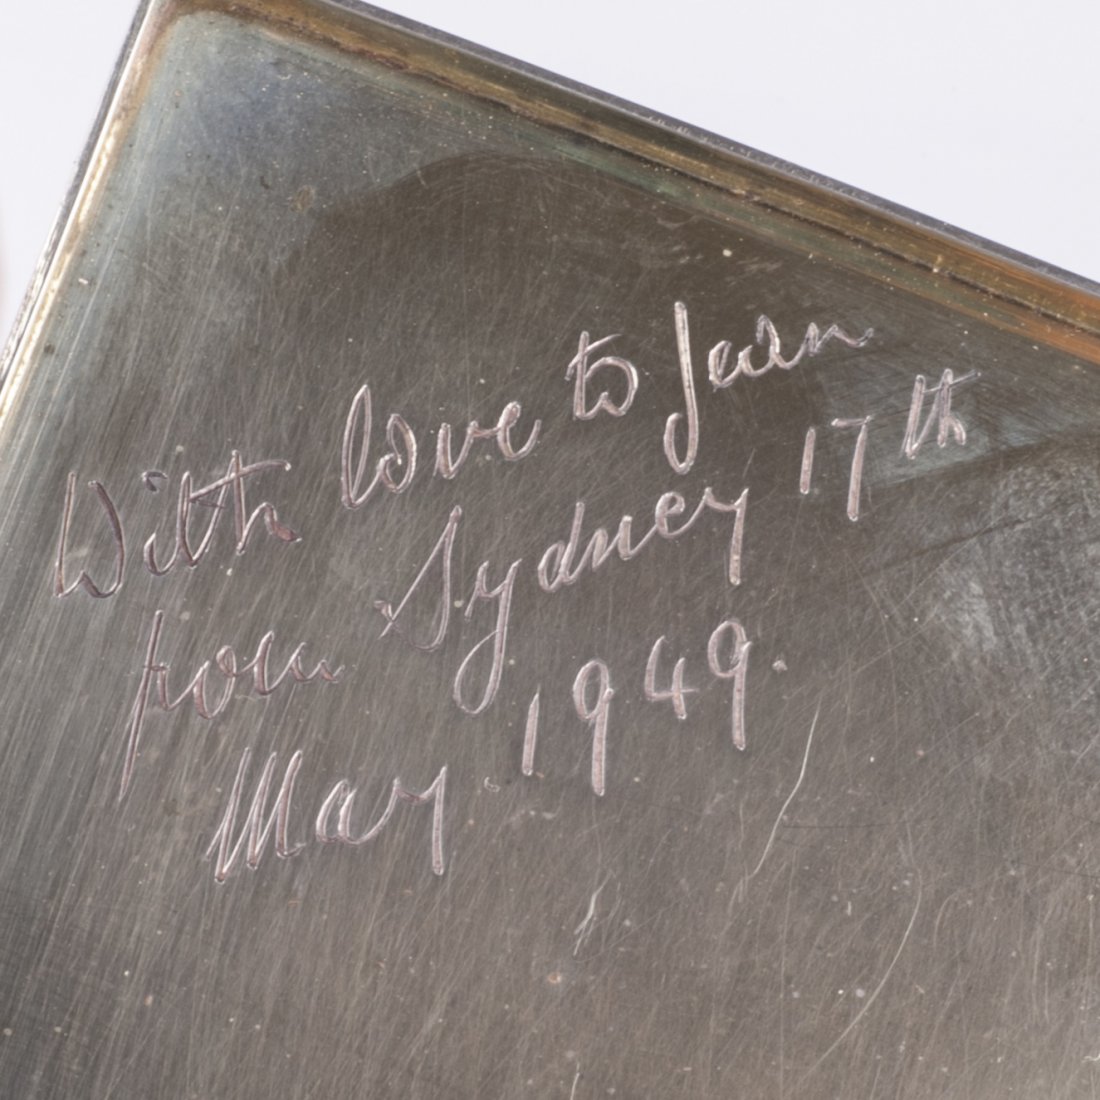 With love to Jean
from Sydney 17th
May 1949.